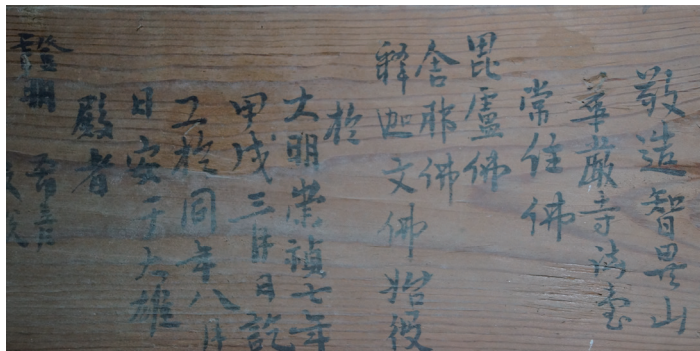 敬造智異山
華嚴寺
常住佛
毘盧佛
舍那佛
釋迦文佛始役
於
大明崇禎七年
甲戌三月日訖
工於同年八月
日安于大雄
殿者
證明